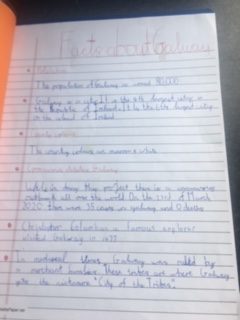 Facts about Galway
Population
The population of Galway is around 80,000
Galway is a city. It is the 4th largest city in
the Republic of Ireland. It is the 6th largest city
in the island of Ireland
County colours
The county colours are maroon & white
Coronavirus Galway
While I'm doing this project there is a coronavirus
outbreak all over the world. On the 23rd of March
2020 there were 35 cases in galway and 0 deaths
Christopher Columbus a famous explorer
visited Galway in 1477
In medieval times, Galway was ruled by
14 merchant families. These tribes are where Galway
gets the nickname "City of the Tribes"